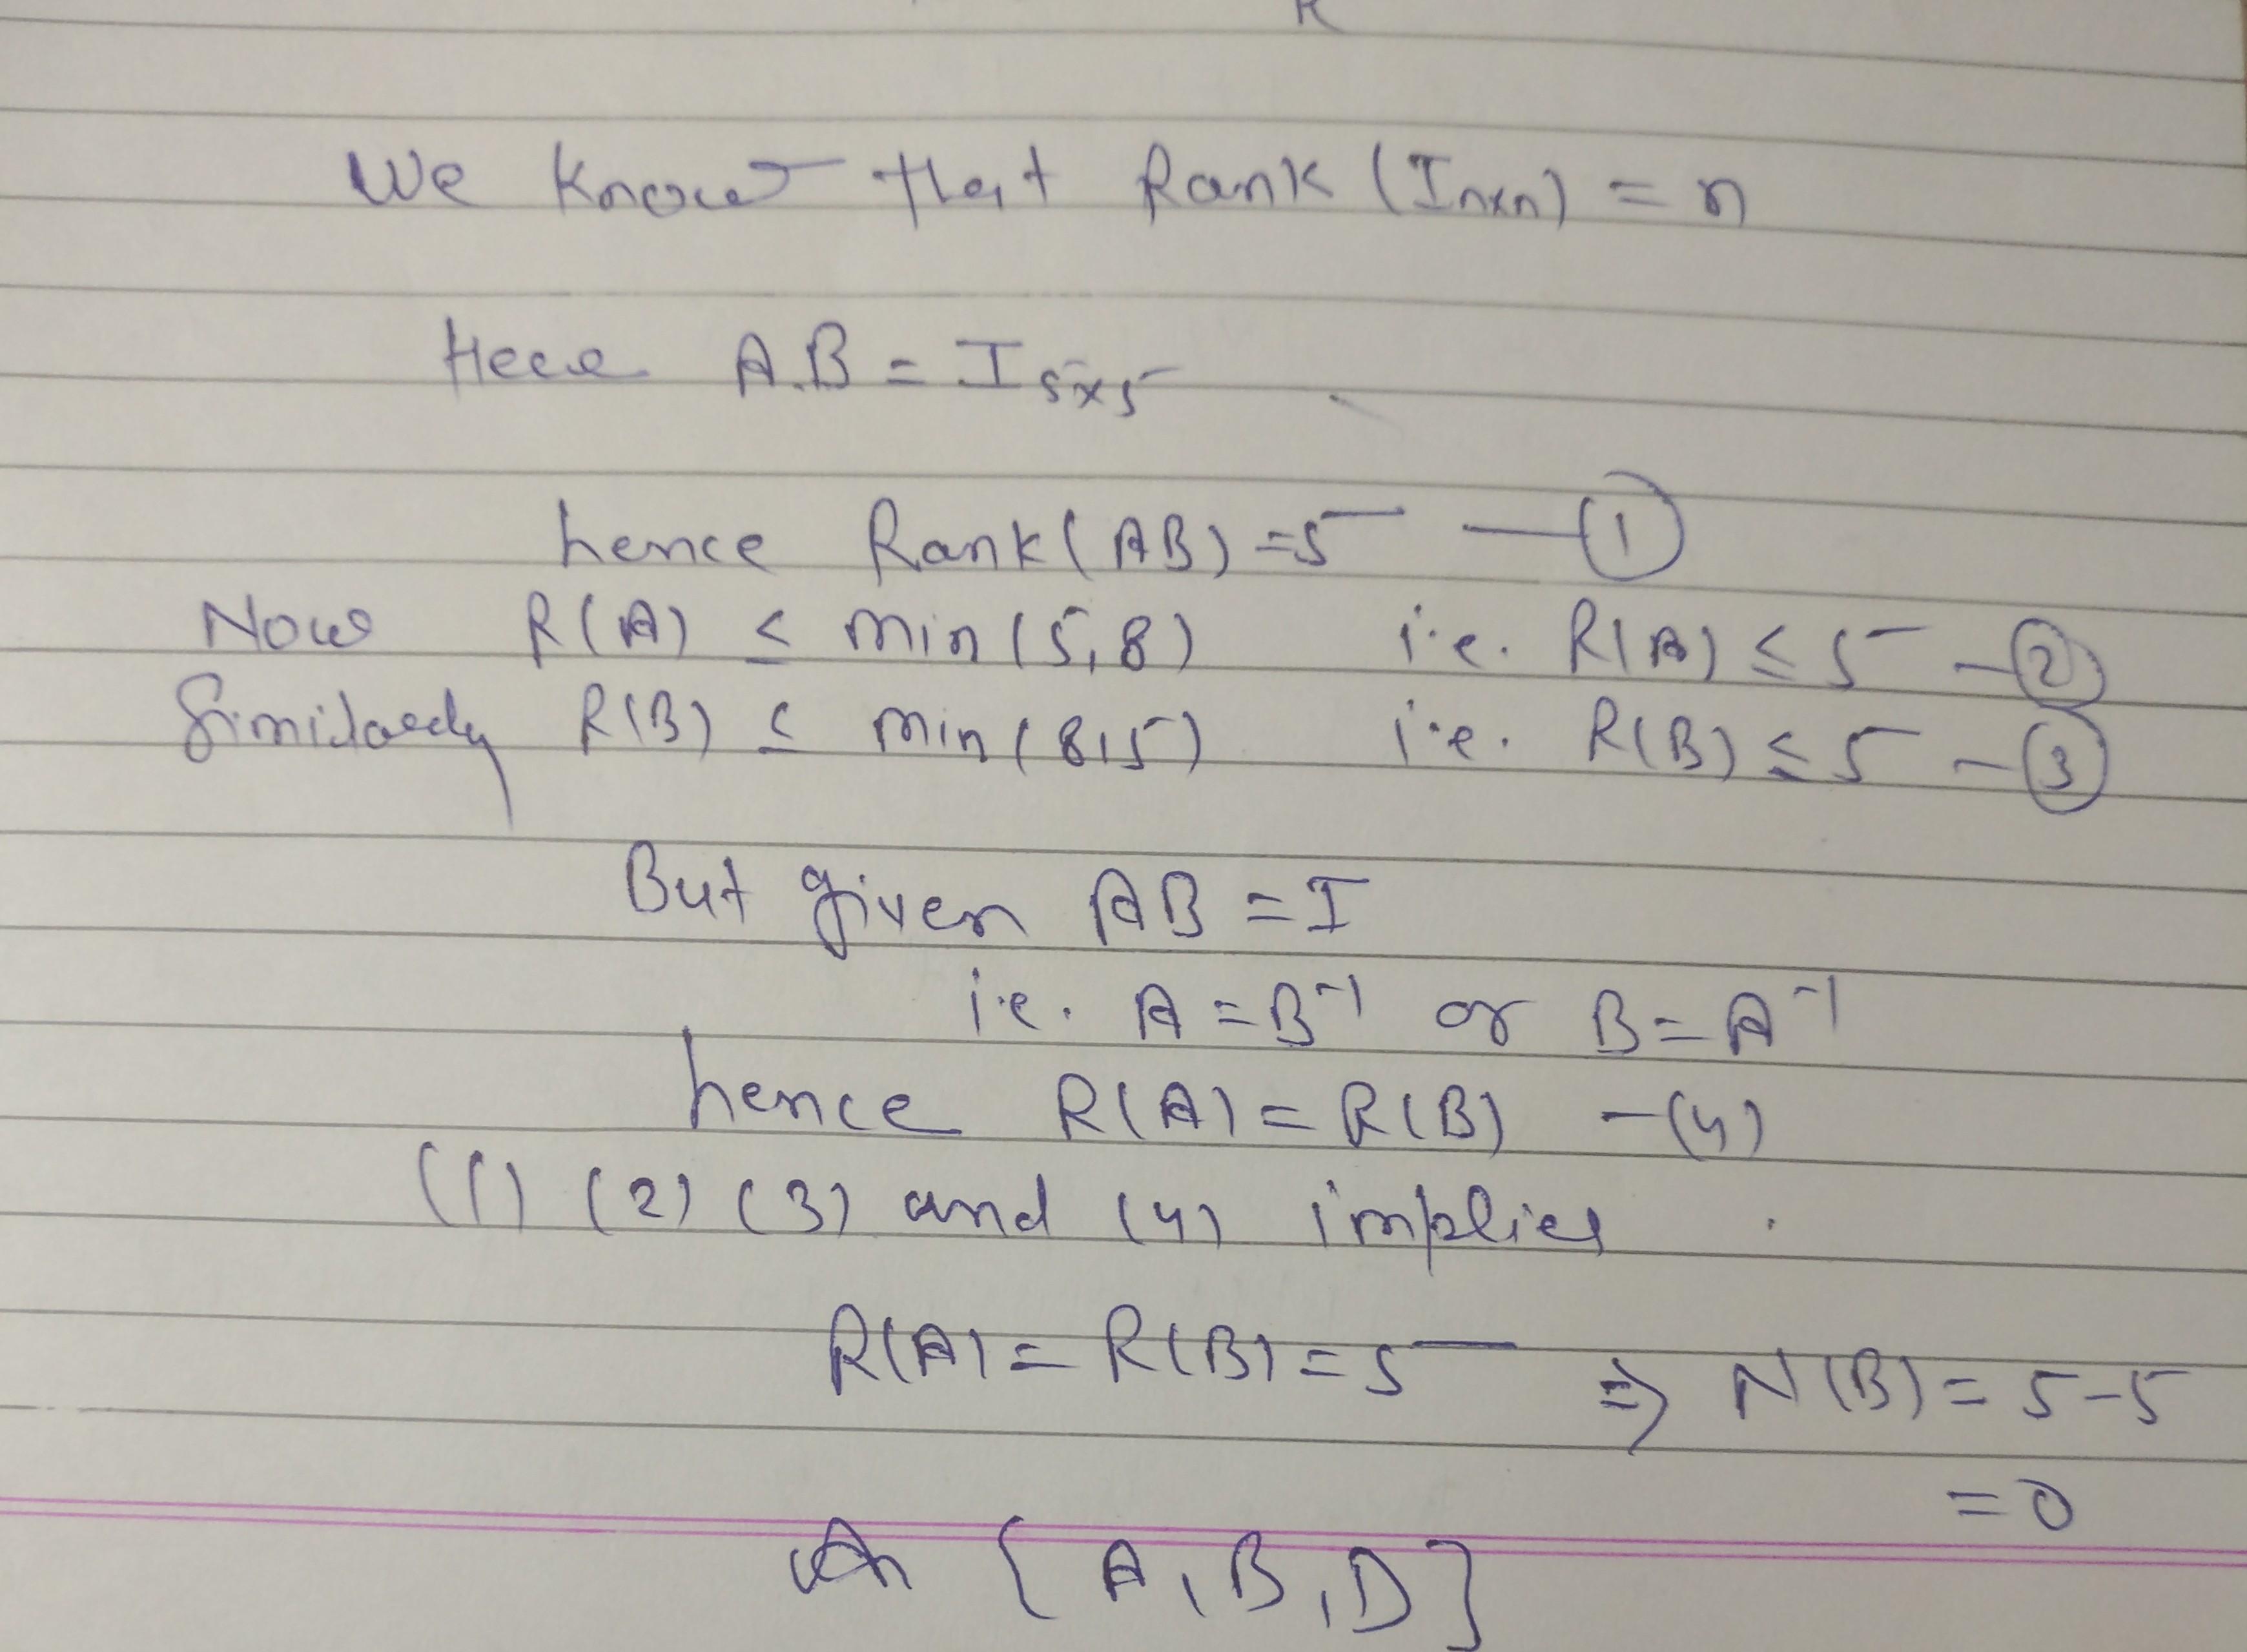 We know that Rank (Inxn) = n
Here A.B = I 5x5
hence Rank(AB) = 5 — ①
Now R(A) ≤ min(5,8) i.e. R(A) ≤ 5 - ②
Similarly R(B) ≤ min(8,5) i.e. R(B) ≤ 5 - ③
But given AB = I
i.e. A = B⁻¹ or B = A⁻¹
hence R(A) = R(B) -(4)
(1) (2) (3) and (4) implies
R(A) = R(B) = 5 ⇒ N(B) = 5-5
= 0
{ A, B, D }